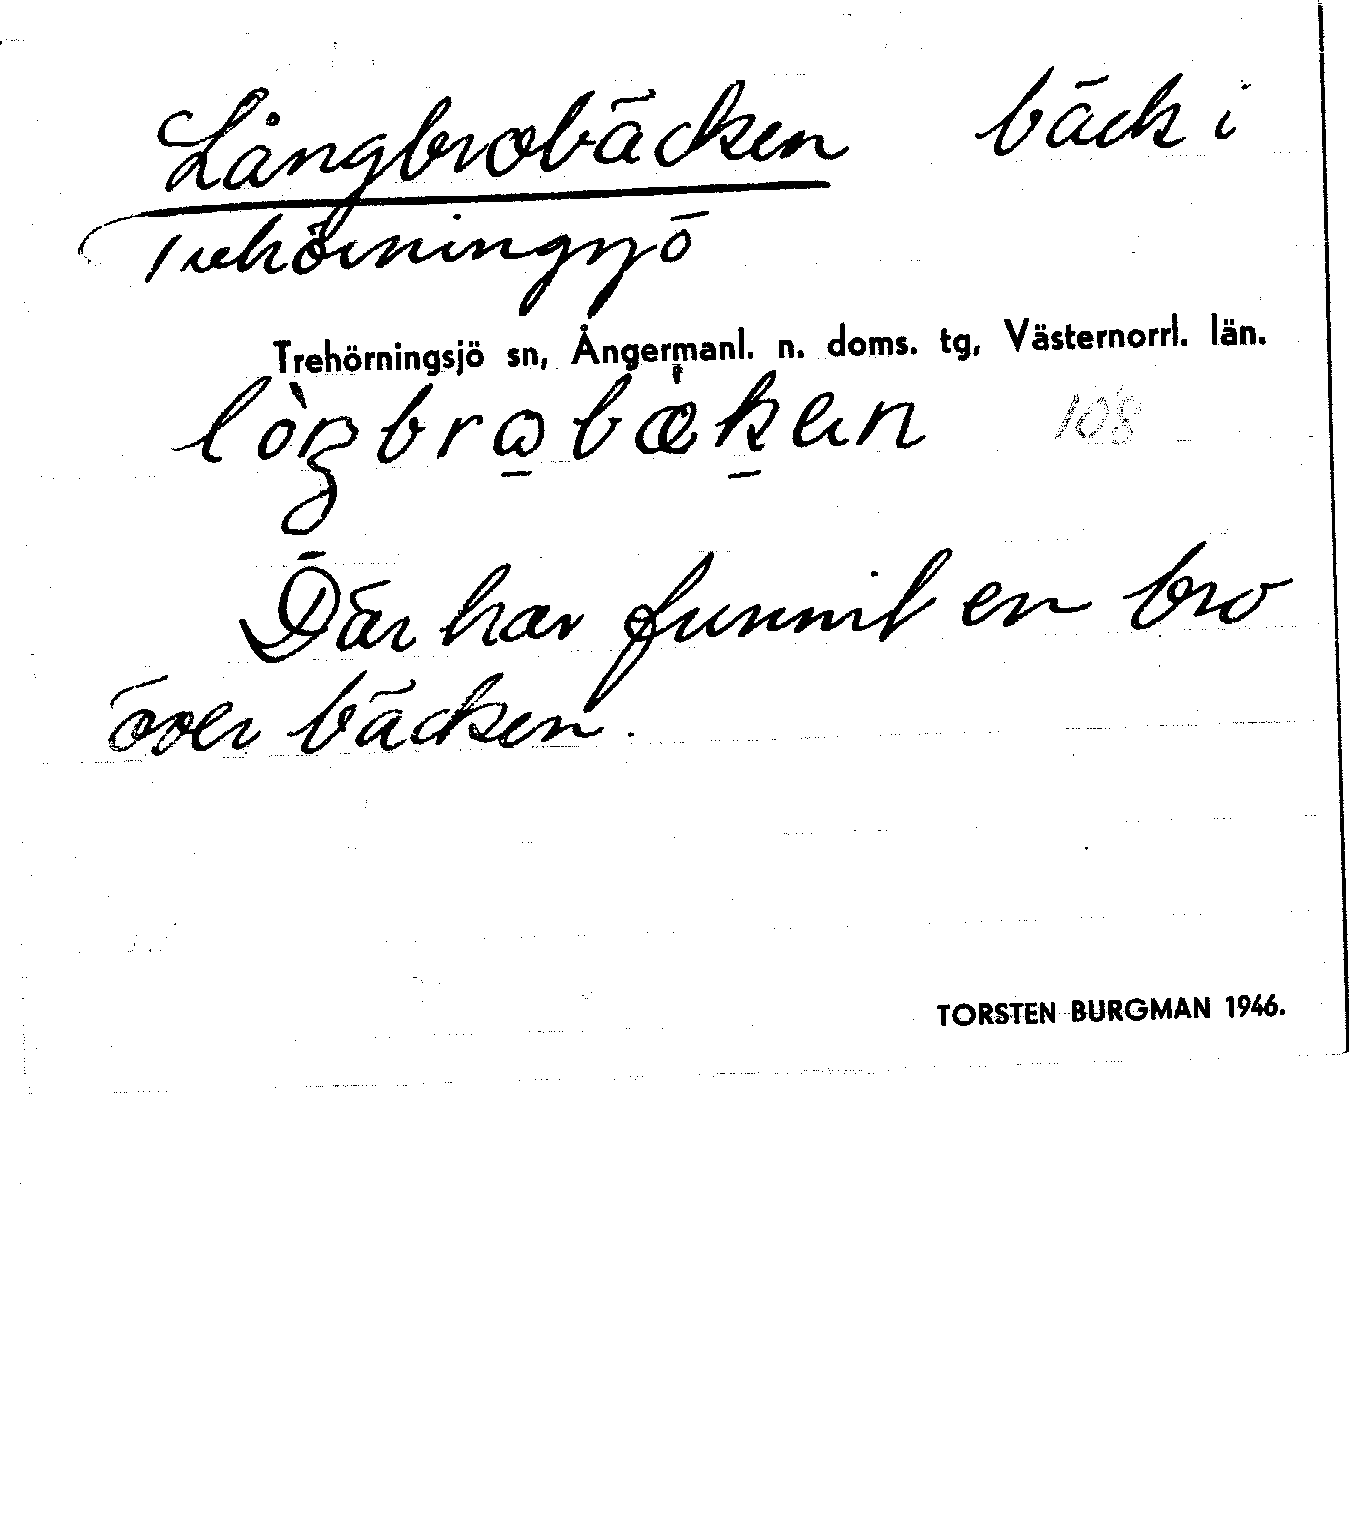 Långbrobäcken bäck i
Trehörningsjö
Trehörningsjö sn, Ångermanl. n. doms. tg, Västernorrl. län.
108
Där har funnit en bro
över bäcken.
TORSTEN BURGMAN 1946.